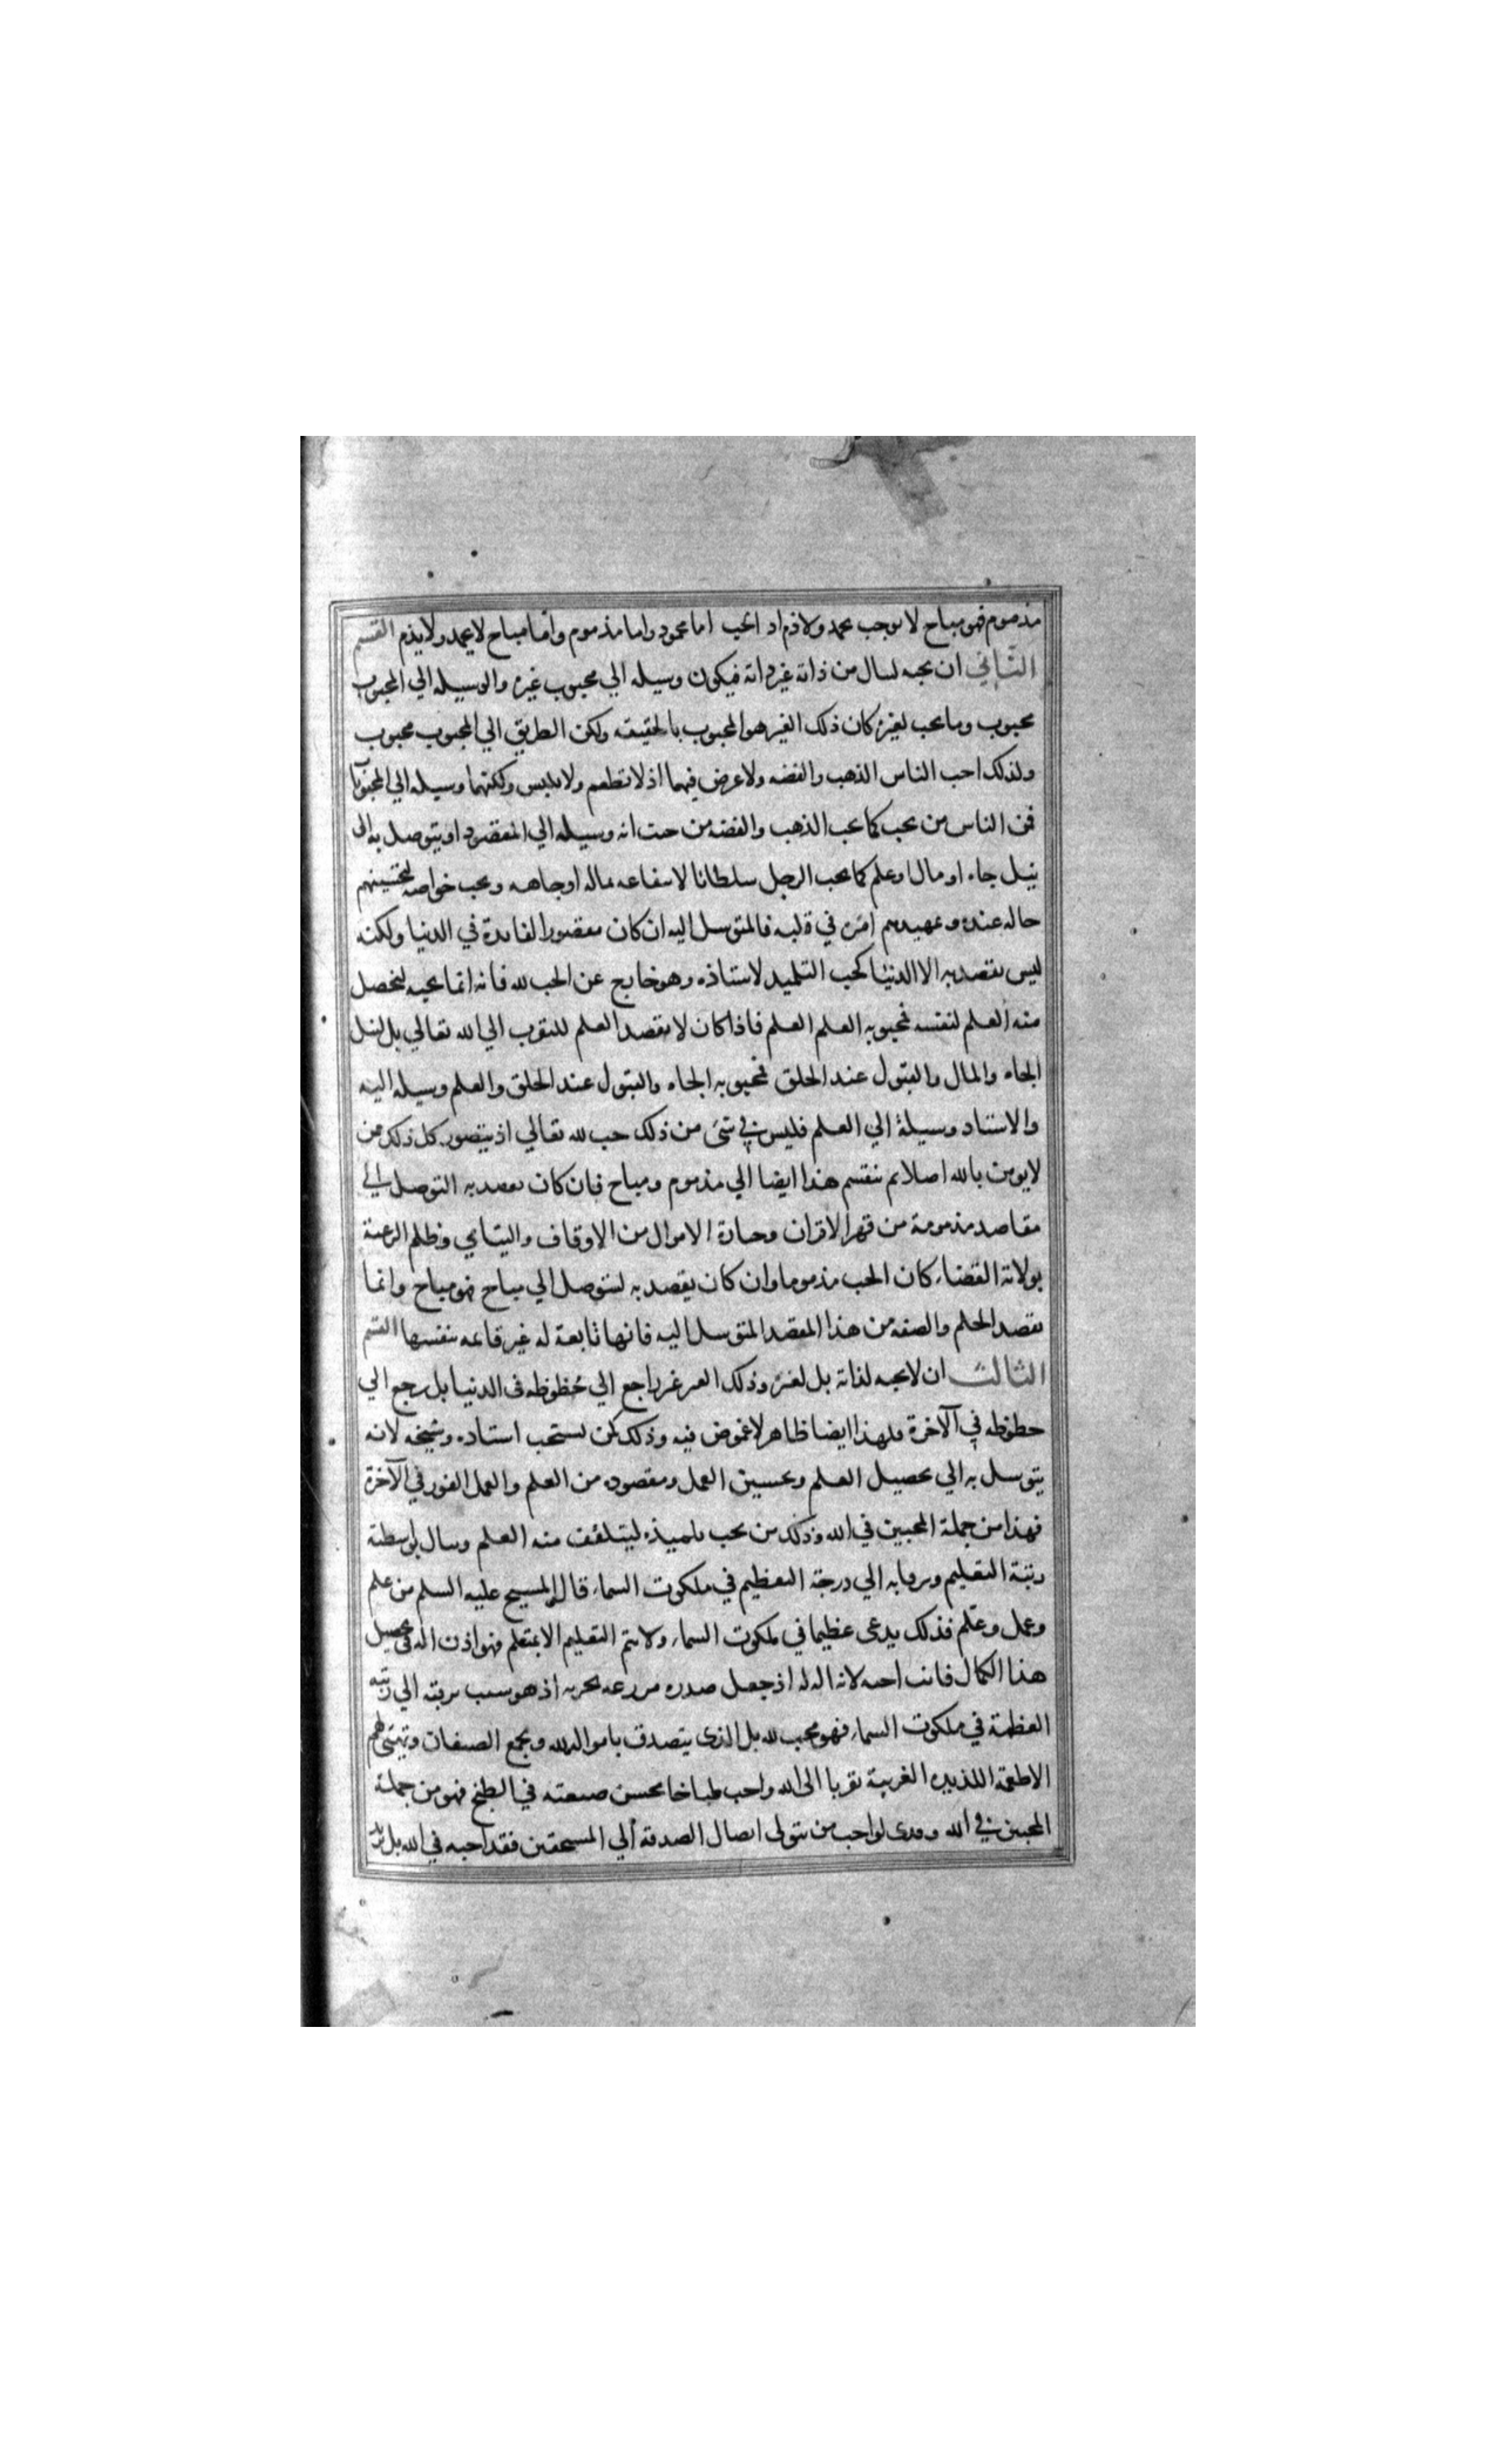 مذموم فهو مباح لا يوجب حمد ولا ذم اذ الحب اما محمود واما مذموم واما مباح لا يحمد ولا يذم القسم
الثاني ان يحبه لينال من ذاته غير ذاته فيكون وسيله الي محبوب غيره والوسيله الي المحبوب
محبوب وما يحب لغيره كان ذلك الغير هو المحبوب بالحقيقه ولكن الطريق الي المحبوب محبوب
ولذلك احب الناس الذهب والفضه ولا غرض فيهما اذ لا تطعم ولا تلبس ولكنهما وسيله الي المحبوبات
فمن الناس من يحب كما يحب الذهب والفضه من حيث انه وسيله الي المقصود او يتوصل به الى
نيل جاه او مال او علم كما يحب الرجل سلطانا لانتفاعه بماله او جاهه ويحب خواصه لتحسينهم
حاله عنده وتمهيدهم امره في قلبه فالمتوسل اليه ان كان مقصور الفايدة في الدنيا ولكنه
ليس يقصد به الا الدنيا كحب التلميد لاستاذه وهو خارج عن الحب لله فانه انما يحبه ليحصل
منه العلم لنفسه فمحبوبه العلم العلم فاذا كان لا يقصد العلم للتقرب الي الله تعالي بل لنيل
الجاه والمال والقبول عند الخلق فمحبوبه الجاه والقبول عند الخلق والعلم وسيله اليه
والاستاد وسيلة الي العلم فليس في شئ من ذلك حب لله تعالي اذ يتصور كل ذلك من
لا يومن بالله اصلا ثم ينقسم هذا ايضا الي مذموم ومباح فان كان يقصد به التوصل الي
مقاصد مذمومة من قهر الاقران وحيازة الاموال من الاوقاف واليتامي وظلم الرعية
بولاية القضاء كان الحب مذموما وان كان يقصد به لتتوصل الي مباح فهو مباح وانما
يقصد الحلم والصفه من هذا المقصد المتوسل اليه فانها تابعة له غير قايمه بنفسها القسم
الثالث ان لا يحبه لذاته بل لغيره وذلك الغير غير راجع الي حُظوظه في الدنيا بل يرجع الي
حظوظه في الآخرة فلهذا ايضا ظاهر لا غموض فيه وذلك كمن يستحب استاده وشيخه لانه
يتوسل به الي تحصيل العلم وتحسين العمل ومقصوده من العلم والعمل الفوز في الآخرة
فهذا من جملة المحبين في الله وذلك من يحب تلميذه ليتلقف منه العلم وينال بواسطته
رتبة التعليم ويرقا به الي درجة التعظيم في ملكوت السماء قال المسيح عليه السلم من علم
وعمل وعلم فذلك يدعى عظيما في ملكوت السماء ولا يتم التعليم الا بمتعلم فهو اذن اله في تحصيل
هذا الكمال فانت احبه لانه اله له اذ جعل صدره مزرعه لحرثه اذ هو سبب ترقيه الي رتبة
العظمة في ملكوت السماء فهو محب لله بل الذي يتصدق باموال لله ويجمع الضيفان ويهيئ لهم
الاطعمة اللذيذه الغريبة تقربا الى الله واحب طباخا بحسن صنعته في الطبخ فهو من جملة
المحبين في الله وكذى لو احب من يتولى ايصال الصدقة الي المستحقين فقد احبه في الله بل نزيد